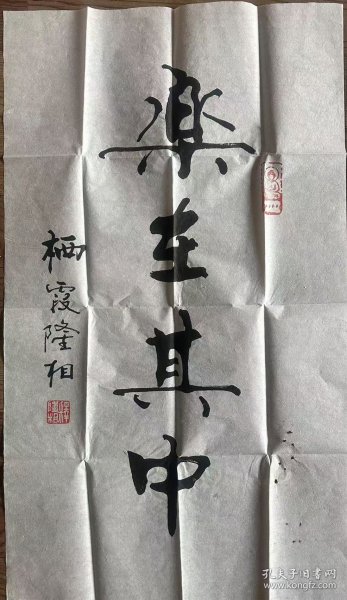 楽在其中
栖霞隆相
孔夫子旧书网
www.kongfz.com